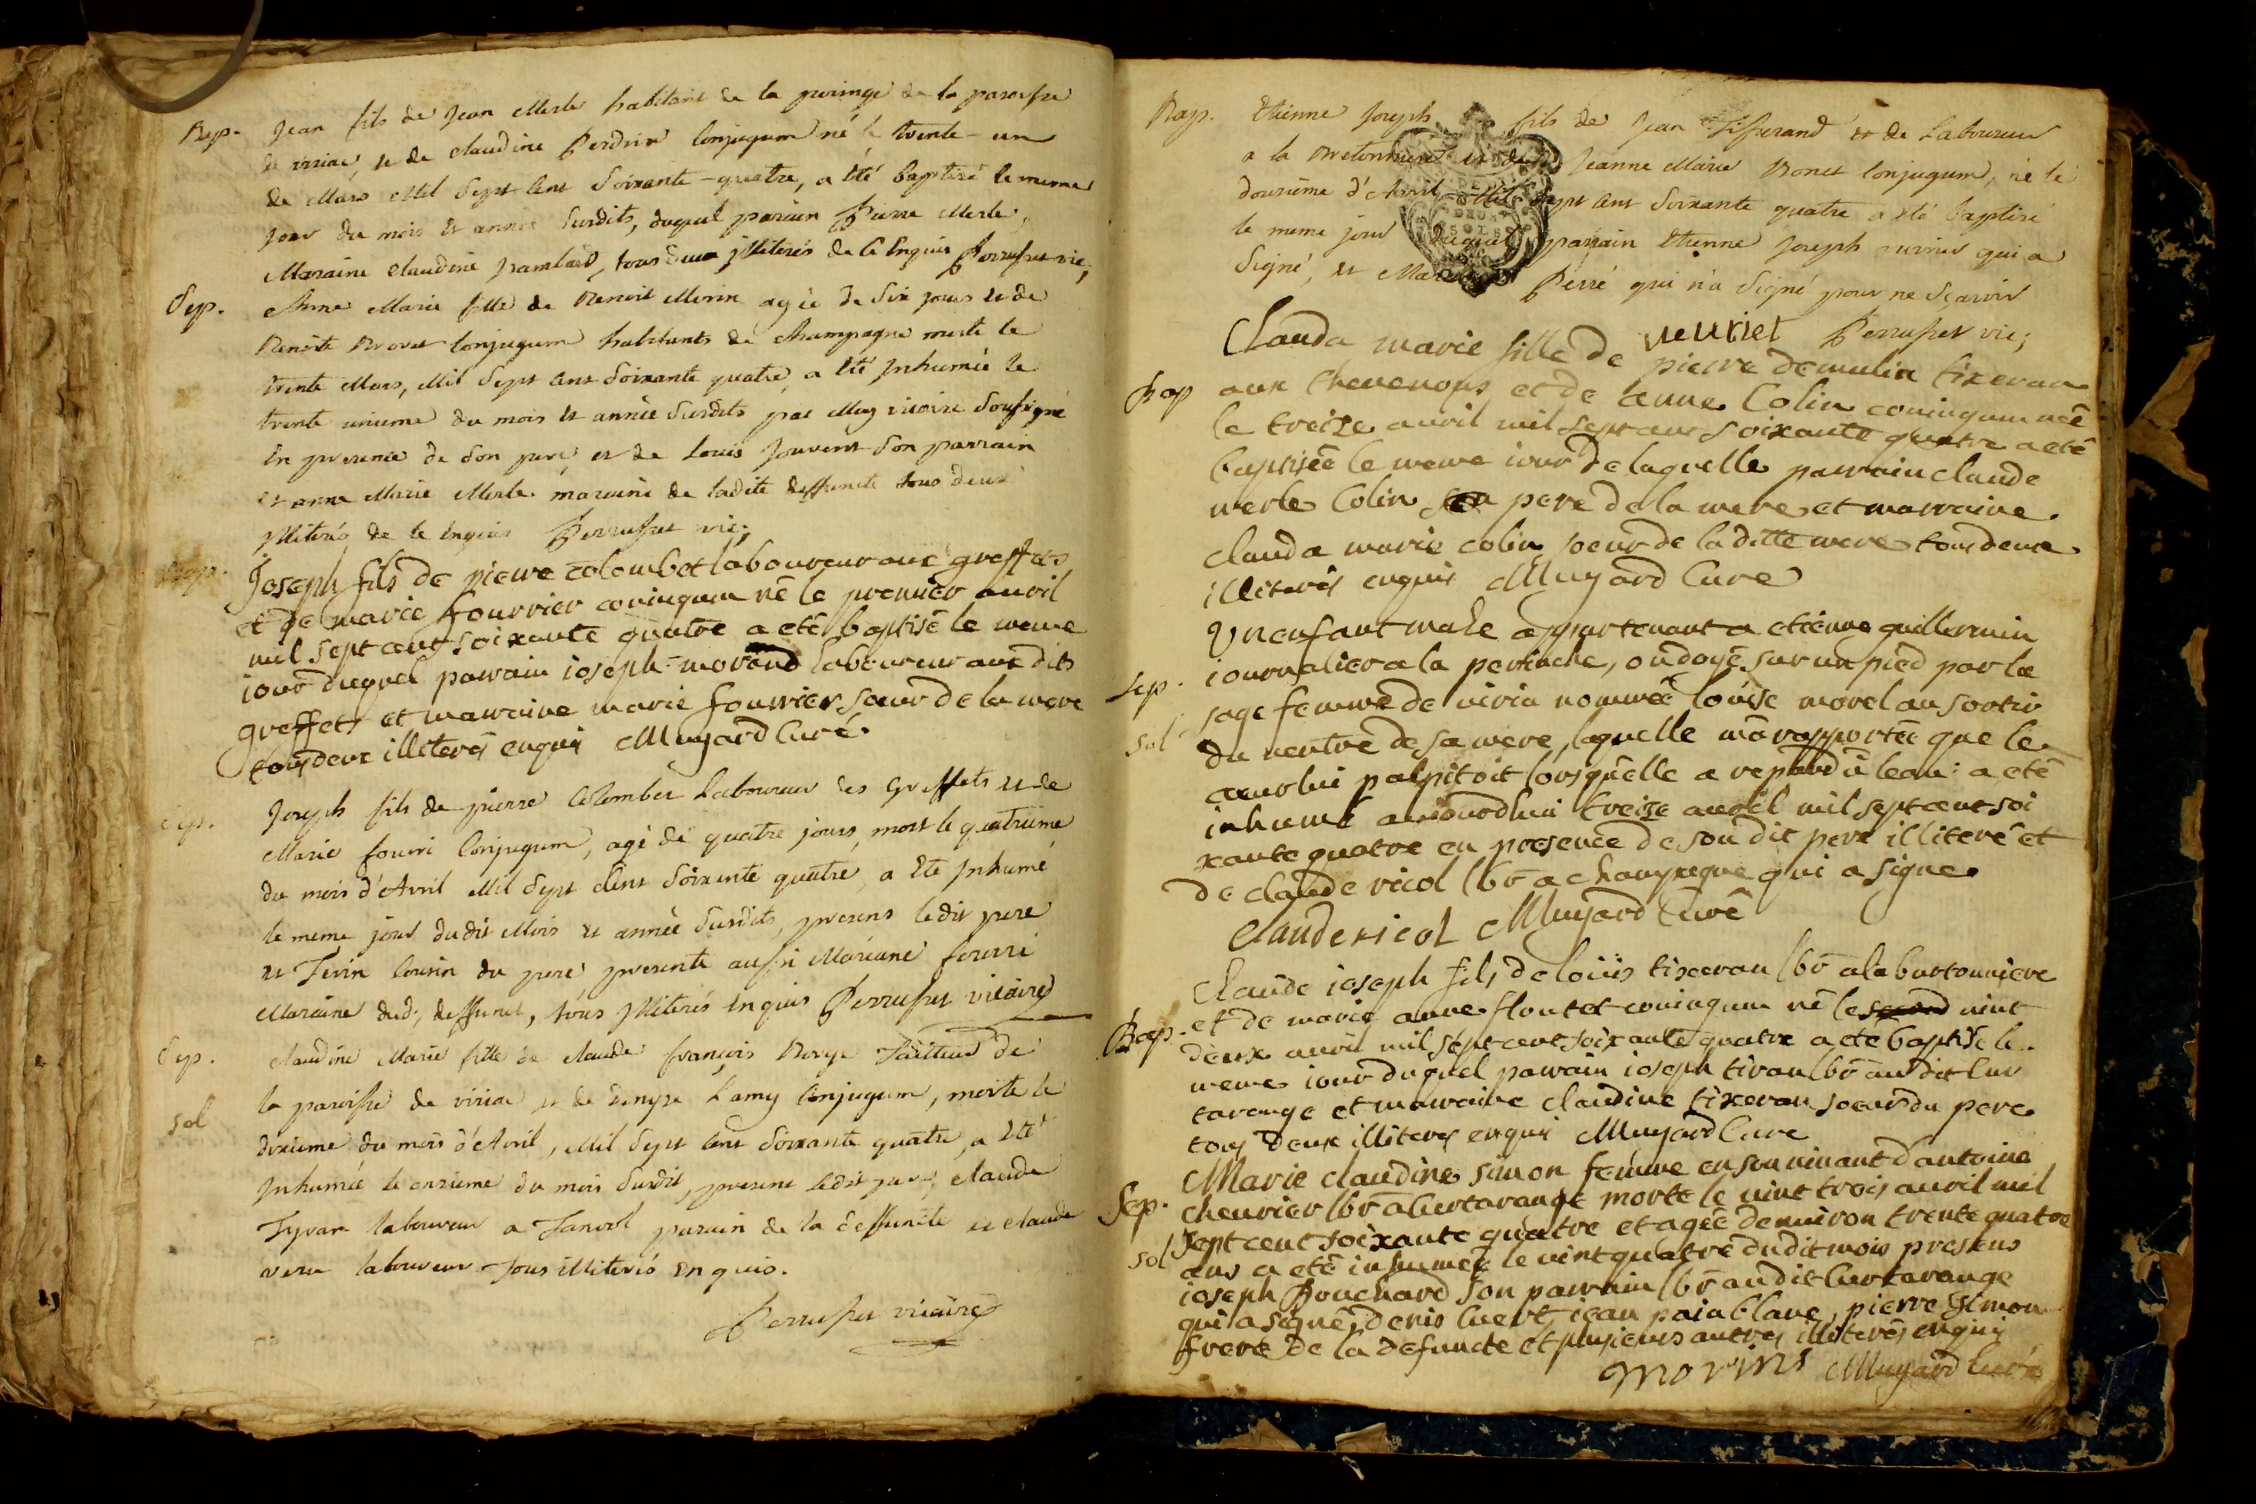 Bap. Jean fils de Jean Merle habitant de la de la paroisse
de viriac, et de claudine Perdrix Conjugum né le trente-un
de Mars Mil Sept Cent Soixante-quatre, a été baptisé le meme
jour du mois et année Susdits, duquel parain Pierre Merle,
Maraine Claudine tous deux illiterés de ce Enquis Perruset vic;
Sep. Anne Marie fille de Benoit Morin agée de Six jours et de
Benoite Brovet Conjugum habitants de Champagne morte le
trente Mars, Mil Sept Cent Soixante quatre, a été Inhumée le
trente unieme du mois et année Susdits par Moy vicaire Sousigné
En presence de Son pere, et de Louis Jouvent Son parrain
et anne Marie Merle maraine de ladite deffuncte tous deux
Illiterés de ce Enquis Perruset vic;
Bap. Joseph fils de pierre colombet laboureur aux greffets
et de marie fourrier coniugum né le premier auril
mil sept cent soixante quatre a eté baptisé le meme
iour duquel parrain ioseph morand laboureur aux dits
greffets et marraine marie fourrier sœur de la mere
tous deux illiterés enquis Muyard Curé
Sep. Joseph fils de pierre Colombet Laboureur des Greffets et de
Marie fourri Conjugum, agé de quatre jours, mort le quatrieme
du mois d'Avril Mil Sept Cent Soixante quatre, a été Inhumé
le meme jour dudit Mois et année Susdits, presens ledit pere
et Tivin Cousin du pere, presente aussi Mariane fourri
Maraine dud. deffunct, tous Illiterés Enquis Perruset vicaire
Sep. Claudine Marie fille de claude françois Tailleur de
Sol la paroisse de viriac et de Denyse Lamy Conjugum, morte le
dixieme du mois d'Avril, Mil Sept Cent Soixante quatre, a été
Inhumée le onzieme du mois Susdit, present ledit pere, claude
Tyvan laboureur a parain de la deffuncte et claude
laboureur tous illiterés Enquis.
Perruset vicaire
Bap. Etienne Joseph fils de Jean Tisserand et de Laboureur
a la Bretonniere et de Jeanne Marie Bonet Conjugum, né le
douzieme d'Avril Mil Sept Cent Soixante quatre a été baptisé
le meme jour duquel parrain Etienne Joseph qui a
Signé, et Perré qui n'a Signé pour ne Scavoir
veuriet Perruset vic;
Bap Clauda marie fille de pierre demulin tixeran
aux Chevenons et de anne Colin coniugum née
le treize auril mil sept cent soixante quatre a eté
baptisée le meme iour de laquelle parrain claude
merle Colin pere de la mere et marraine
clauda marie colin soeur de la ditte mere tous deux
illiterés enquis Muyard Curé
Sep. Un enfant male appartenant a etienne guillermin
iournalier a la perinche, ondoyé sur un pied par la
Sol sage femme de viria nommée louise morel au sortir
du ventre de sa mere, laquelle m'a rapportée que le
cœur lui palpitoit lorsqu'elle a repandu l'eau: a eté
inhumé auiourdhui treize auril mil sept cent soi
xante quatre en presence de son dit pere illiteré et
de claude nicol lbr a champagne qui a signé
Claude nicol Muyard Curé
Bap. Claude ioseph fils de loüis tixeran lbr a la burtonniere
et de marie anne floutet coniugum né le second vint
deux auril mil sept cent soixante quatre a eté baptisé le
meme iour duquel parrain ioseph tivan lbr au dit Cur
tarange et marraine claudine tixeran soeur du pere
tous deux illiterés enquis Muyard Curé
Sep. Marie claudine simon femme en son vivant d'antoine
cheurier lbr a Curtarange morte le vint trois auril mil
Sol sept cent soixante quatre et agée denuiron trente quatre
ans a eté inhumée le vint quatre dudit mois presens
ioseph Bouchard son parrain lbr au dit Curtarange
qui a signé, denis luert, iean painblanc, pierre simon
frere de la defuncte et plusieurs autres illiterés enquis
morins Muyard Curé